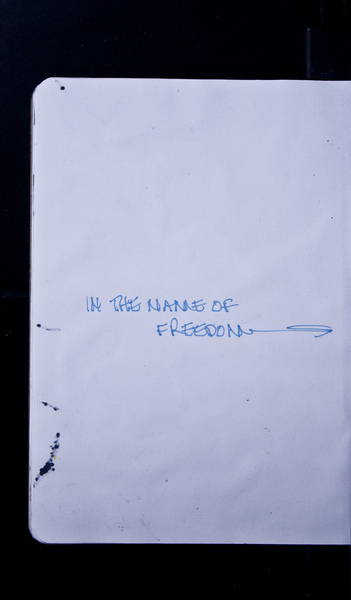 IN THE NAME OF
FREEDOM